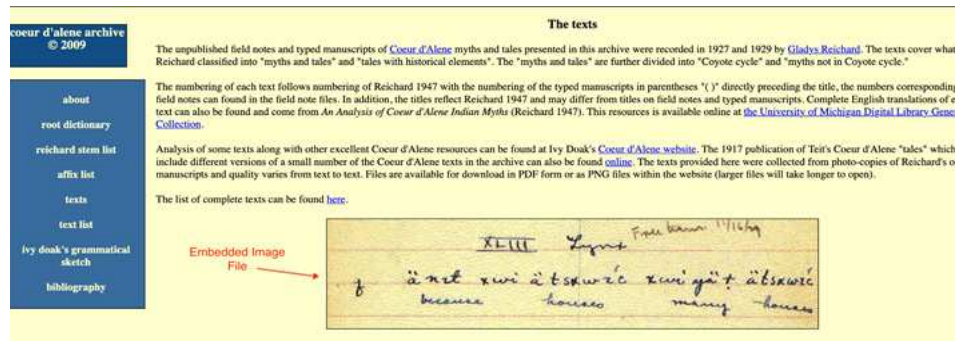 coeur d'alene archive
© 2009
about
root dictionary
reichard stem list
affix list
texts
text list
ivy doak's grammatical
sketch
bibliography
The texts
The unpublished field notes and typed manuscripts of Coeur d'Alene myths and tales presented in this archive were recorded in 1927 and 1929 by Gladys Reichard. The texts cover what
Reichard classified into "myths and tales" and "tales with historical elements". The "myths and tales" are further divided into "Coyote cycle" and "myths not in Coyote cycle."
The numbering of each text follows numbering of Reichard 1947 with the numbering of the typed manuscripts in parentheses "( )" directly preceding the title, the numbers corresponding
field notes can found in the field note files. In addition, the titles reflect Reichard 1947 and may differ from titles on field notes and typed manuscripts. Complete English translations of e
text can also be found and come from An Analysis of Coeur d'Alene Indian Myths (Reichard 1947). This resources is available online at the University of Michigan Digital Library Gene
Collection.
Analysis of some texts along with other excellent Coeur d'Alene resources can be found at Ivy Doak's Coeur d'Alene website. The 1917 publication of Teit's Coeur d'Alene "tales" which
include different versions of a small number of the Coeur d'Alene texts in the archive can also be found online. The texts provided here were collected from photo-copies of Reichard's o
manuscripts and quality varies from text to text. Files are available for download in PDF form or as PNG files within the website (larger files will take longer to open).
The list of complete texts can be found here.
Embedded Image
File
XLIII Lynx 11/16/29
xwi xwi
because houses many houses